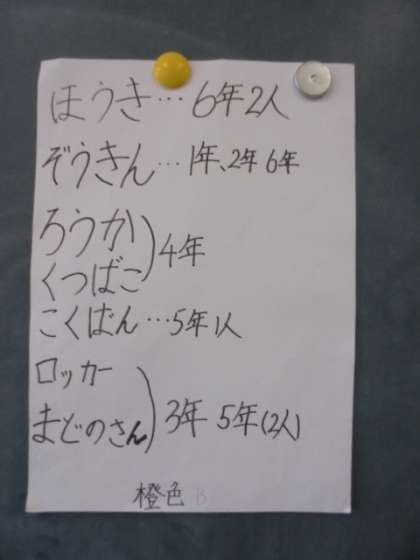 ほうき…6年2人
ぞうきん…1年、2年 6年
ろうか
くつばこ)4年
こくばん…5年1人
ロッカー
まどのさん)3年 5年(2人)
橙色 B